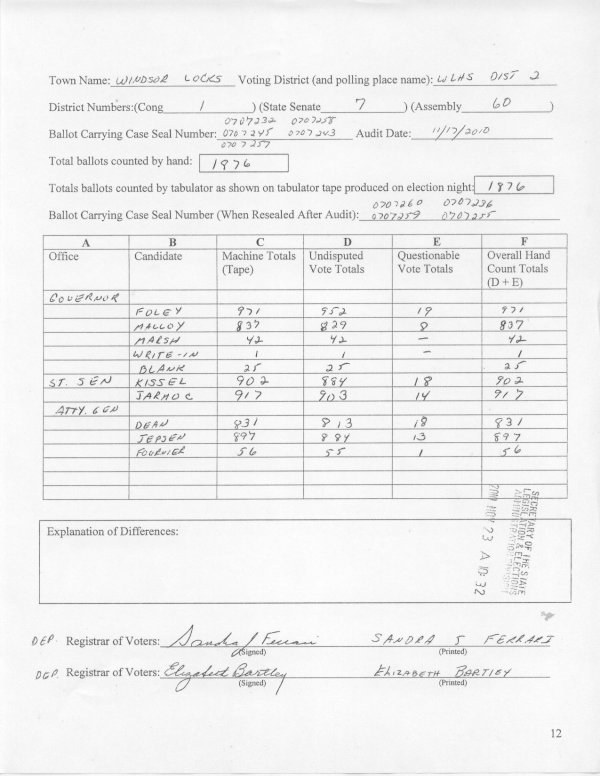 Town Name: WINDSOR LOCKS Voting District (and polling place name): WLHS DIST 2
District Numbers:(Cong 1 ) (State Senate 7 ) (Assembly 60 )
0707232 0707258
Ballot Carrying Case Seal Number: 0707245 0707243 Audit Date: 11/17/2010
0707257
Total ballots counted by hand: 1876
Totals ballots counted by tabulator as shown on tabulator tape produced on election night: 1876
0707260 0707236
Ballot Carrying Case Seal Number (When Resealed After Audit): 0707259 0707255
A B C D E F
Office Candidate Machine Totals (Tape) Undisputed Vote Totals Questionable Vote Totals Overall Hand Count Totals (D + E)
GOVERNOR
FOLEY 971 952 19 971
MALLOY 837 829 8 837
MARSH 42 42 – 42
WRITE-IN 1 1 – 1
BLANK 25 25 25
ST. SEN KISSEL 902 884 18 902
JARMOC 917 903 14 917
ATTY. GEN
DEAN 831 813 18 831
JEPSEN 897 884 13 897
FOURNIER 56 55 1 56
SECRETARY OF THE STATE
LEGISLATION & ELECTIONS
ADMINISTRATION DIVISION
2010 NOV 23 A 10:32
Explanation of Differences:
DEP. Registrar of Voters: Sandra J Ferrari SANDRA J FERRARI
(Signed) (Printed)
DEP. Registrar of Voters: Elizabeth Bartley ELIZABETH BARTLEY
(Signed) (Printed)
12